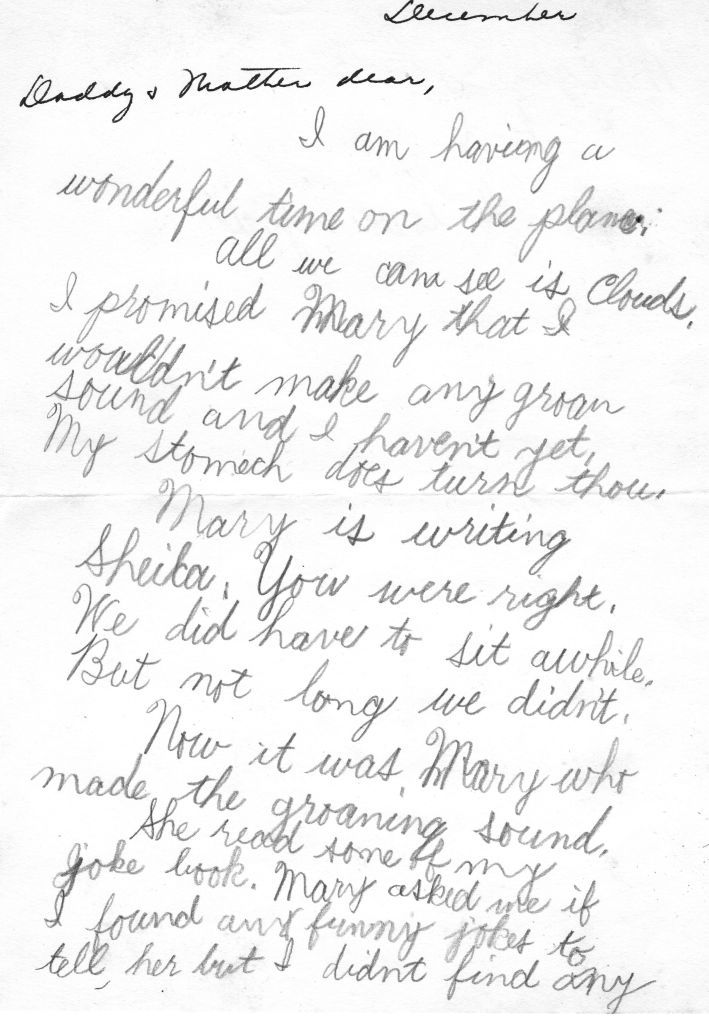 December
Daddy & Mother dear,
I am having a
wonderful time on the plane.
All we can see is Clouds.
I promised Mary that I
wouldn't make any groan
sound and I haven't yet.
My stomech does turn thou.
Mary is writing
Sheila. You were right.
We did have to sit awhile.
But not long we didn't.
Now it was Mary who
made the groaning sound.
She read some of my
joke book. Mary asked me if
I found any funny jokes to
tell her but I didnt find any